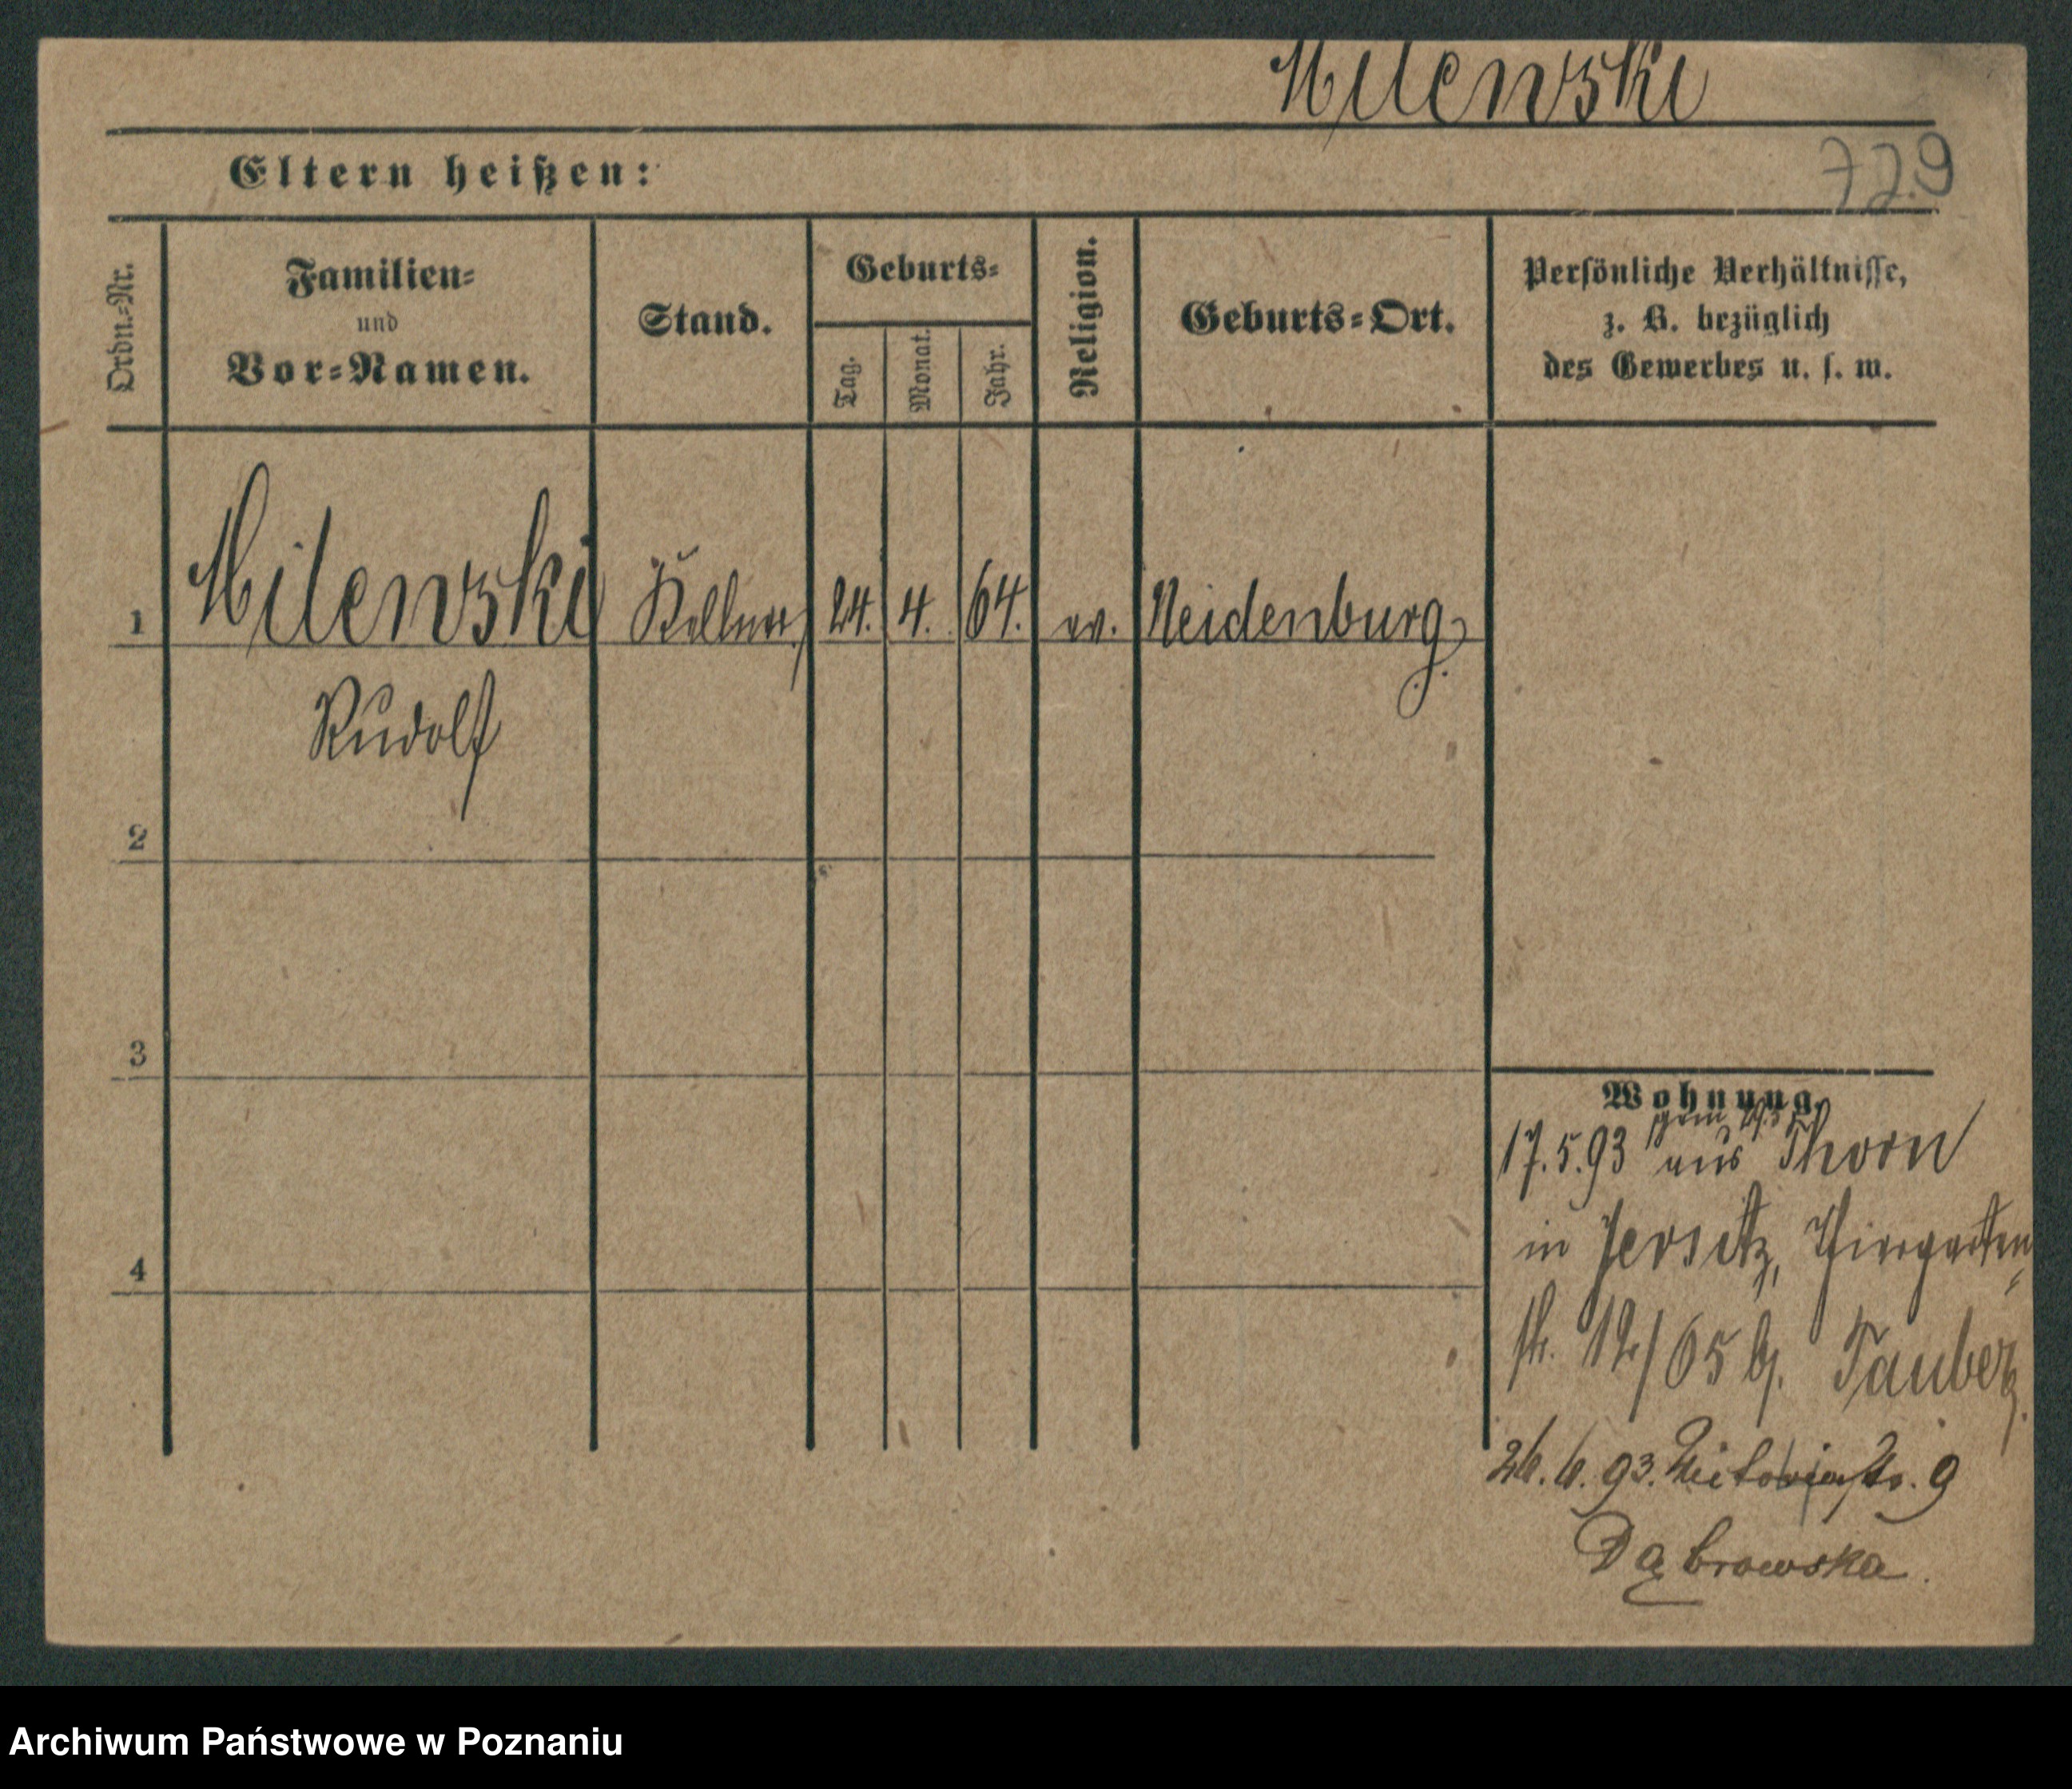 Milewski
729
Eltern heißen:
Ordn.-Nr.
Familien-
und
Vor-Namen.
Stand.
Geburts-
Tag.
Monat.
Jahr.
Religion.
Geburts-Ort.
Persönliche Verhältnisse,
z. B. bezüglich
des Gewerbes u. s. w.
1 Milewski Kellner 24. 4. 64. ev. Neidenburg.
Rudolf
2
3
4
Wohnung.
17.5.93 aus Thorn
in Jersitz, Thiergarten
str. 12/65 b. Tauber
26. 6. 93. Victoriastr. 9
Dąbrowska.
Archiwum Państwowe w Poznaniu